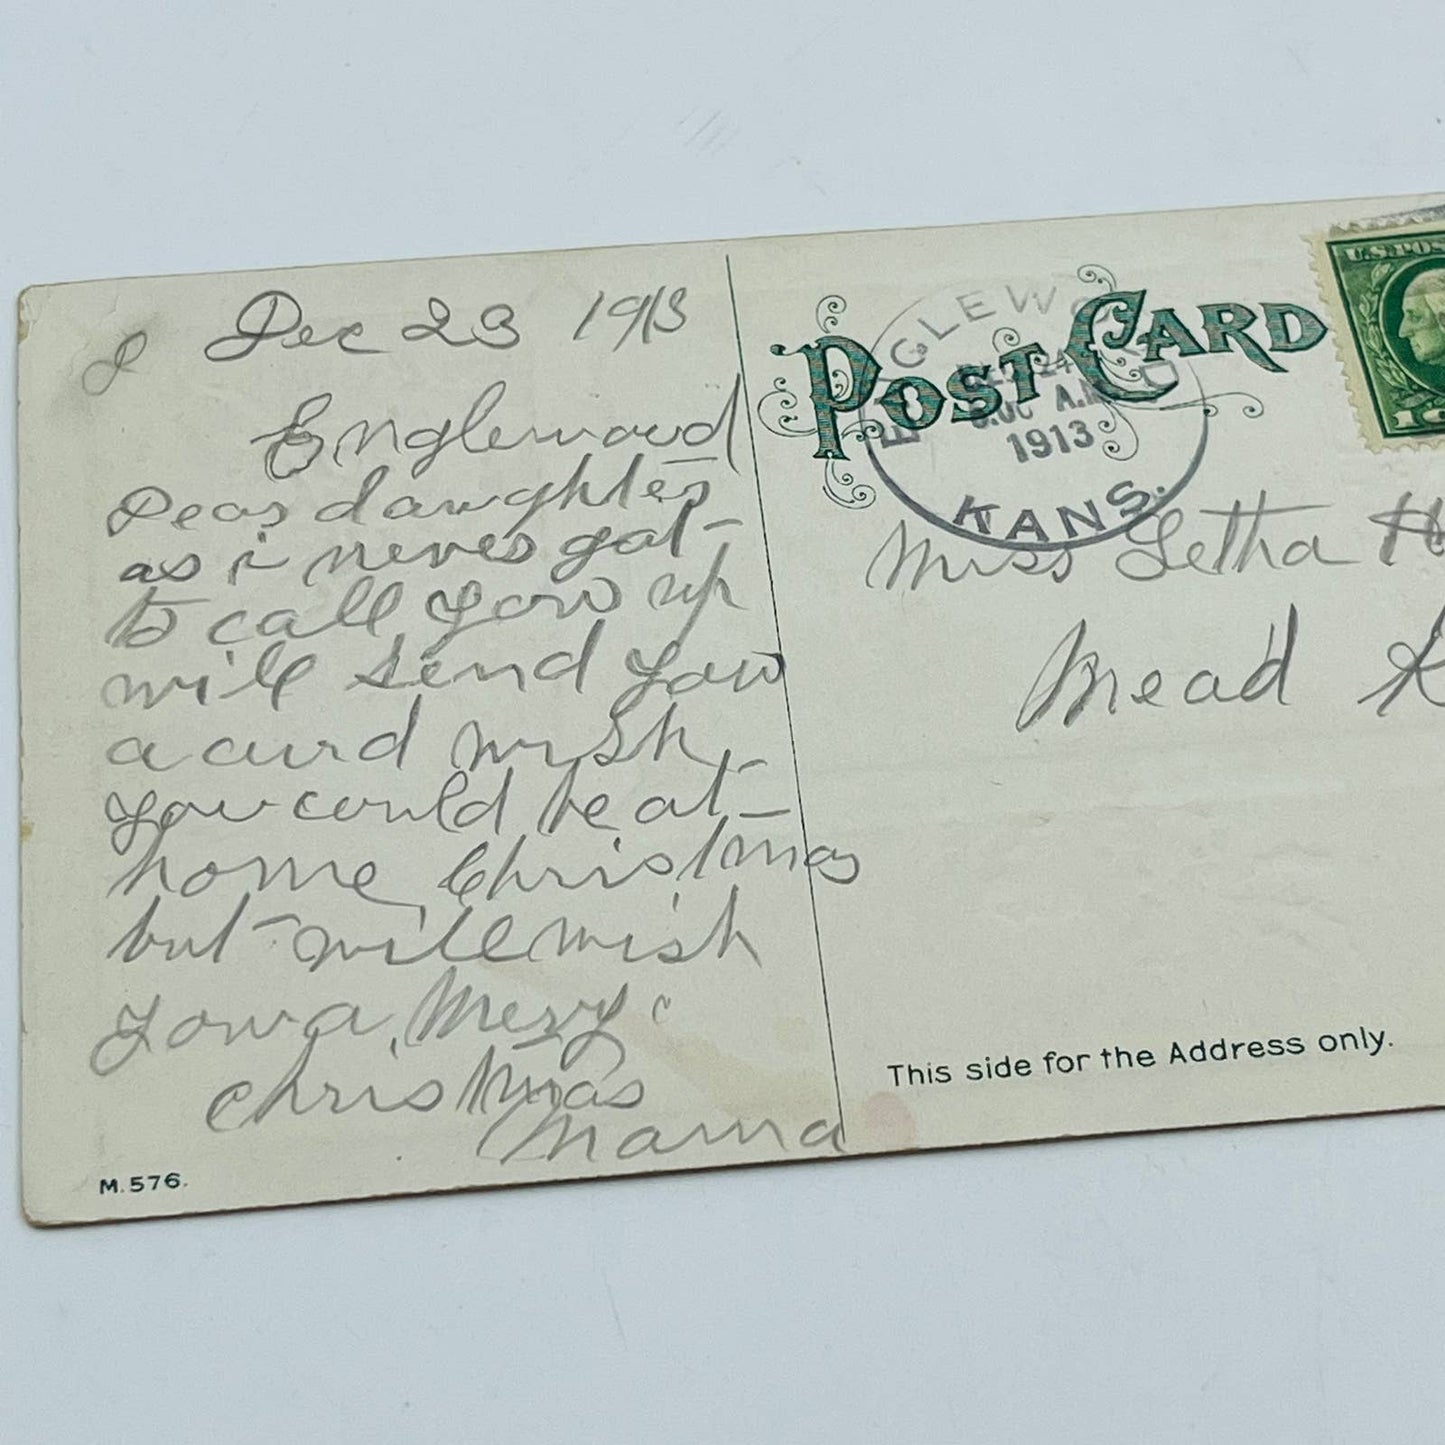 Dec 23 1913
Englewood
Dear daughter
as i never got
to call you up
will send you
a card wish
you could be at
home Christmas
but will wish
you a Mery
christmas
Mama
M. 576.
POST CARD
ENGLEWOOD
DEC 24
A.M.
1913
KANS.
U.S. POS
Miss Letha
Mead
This side for the Address only.